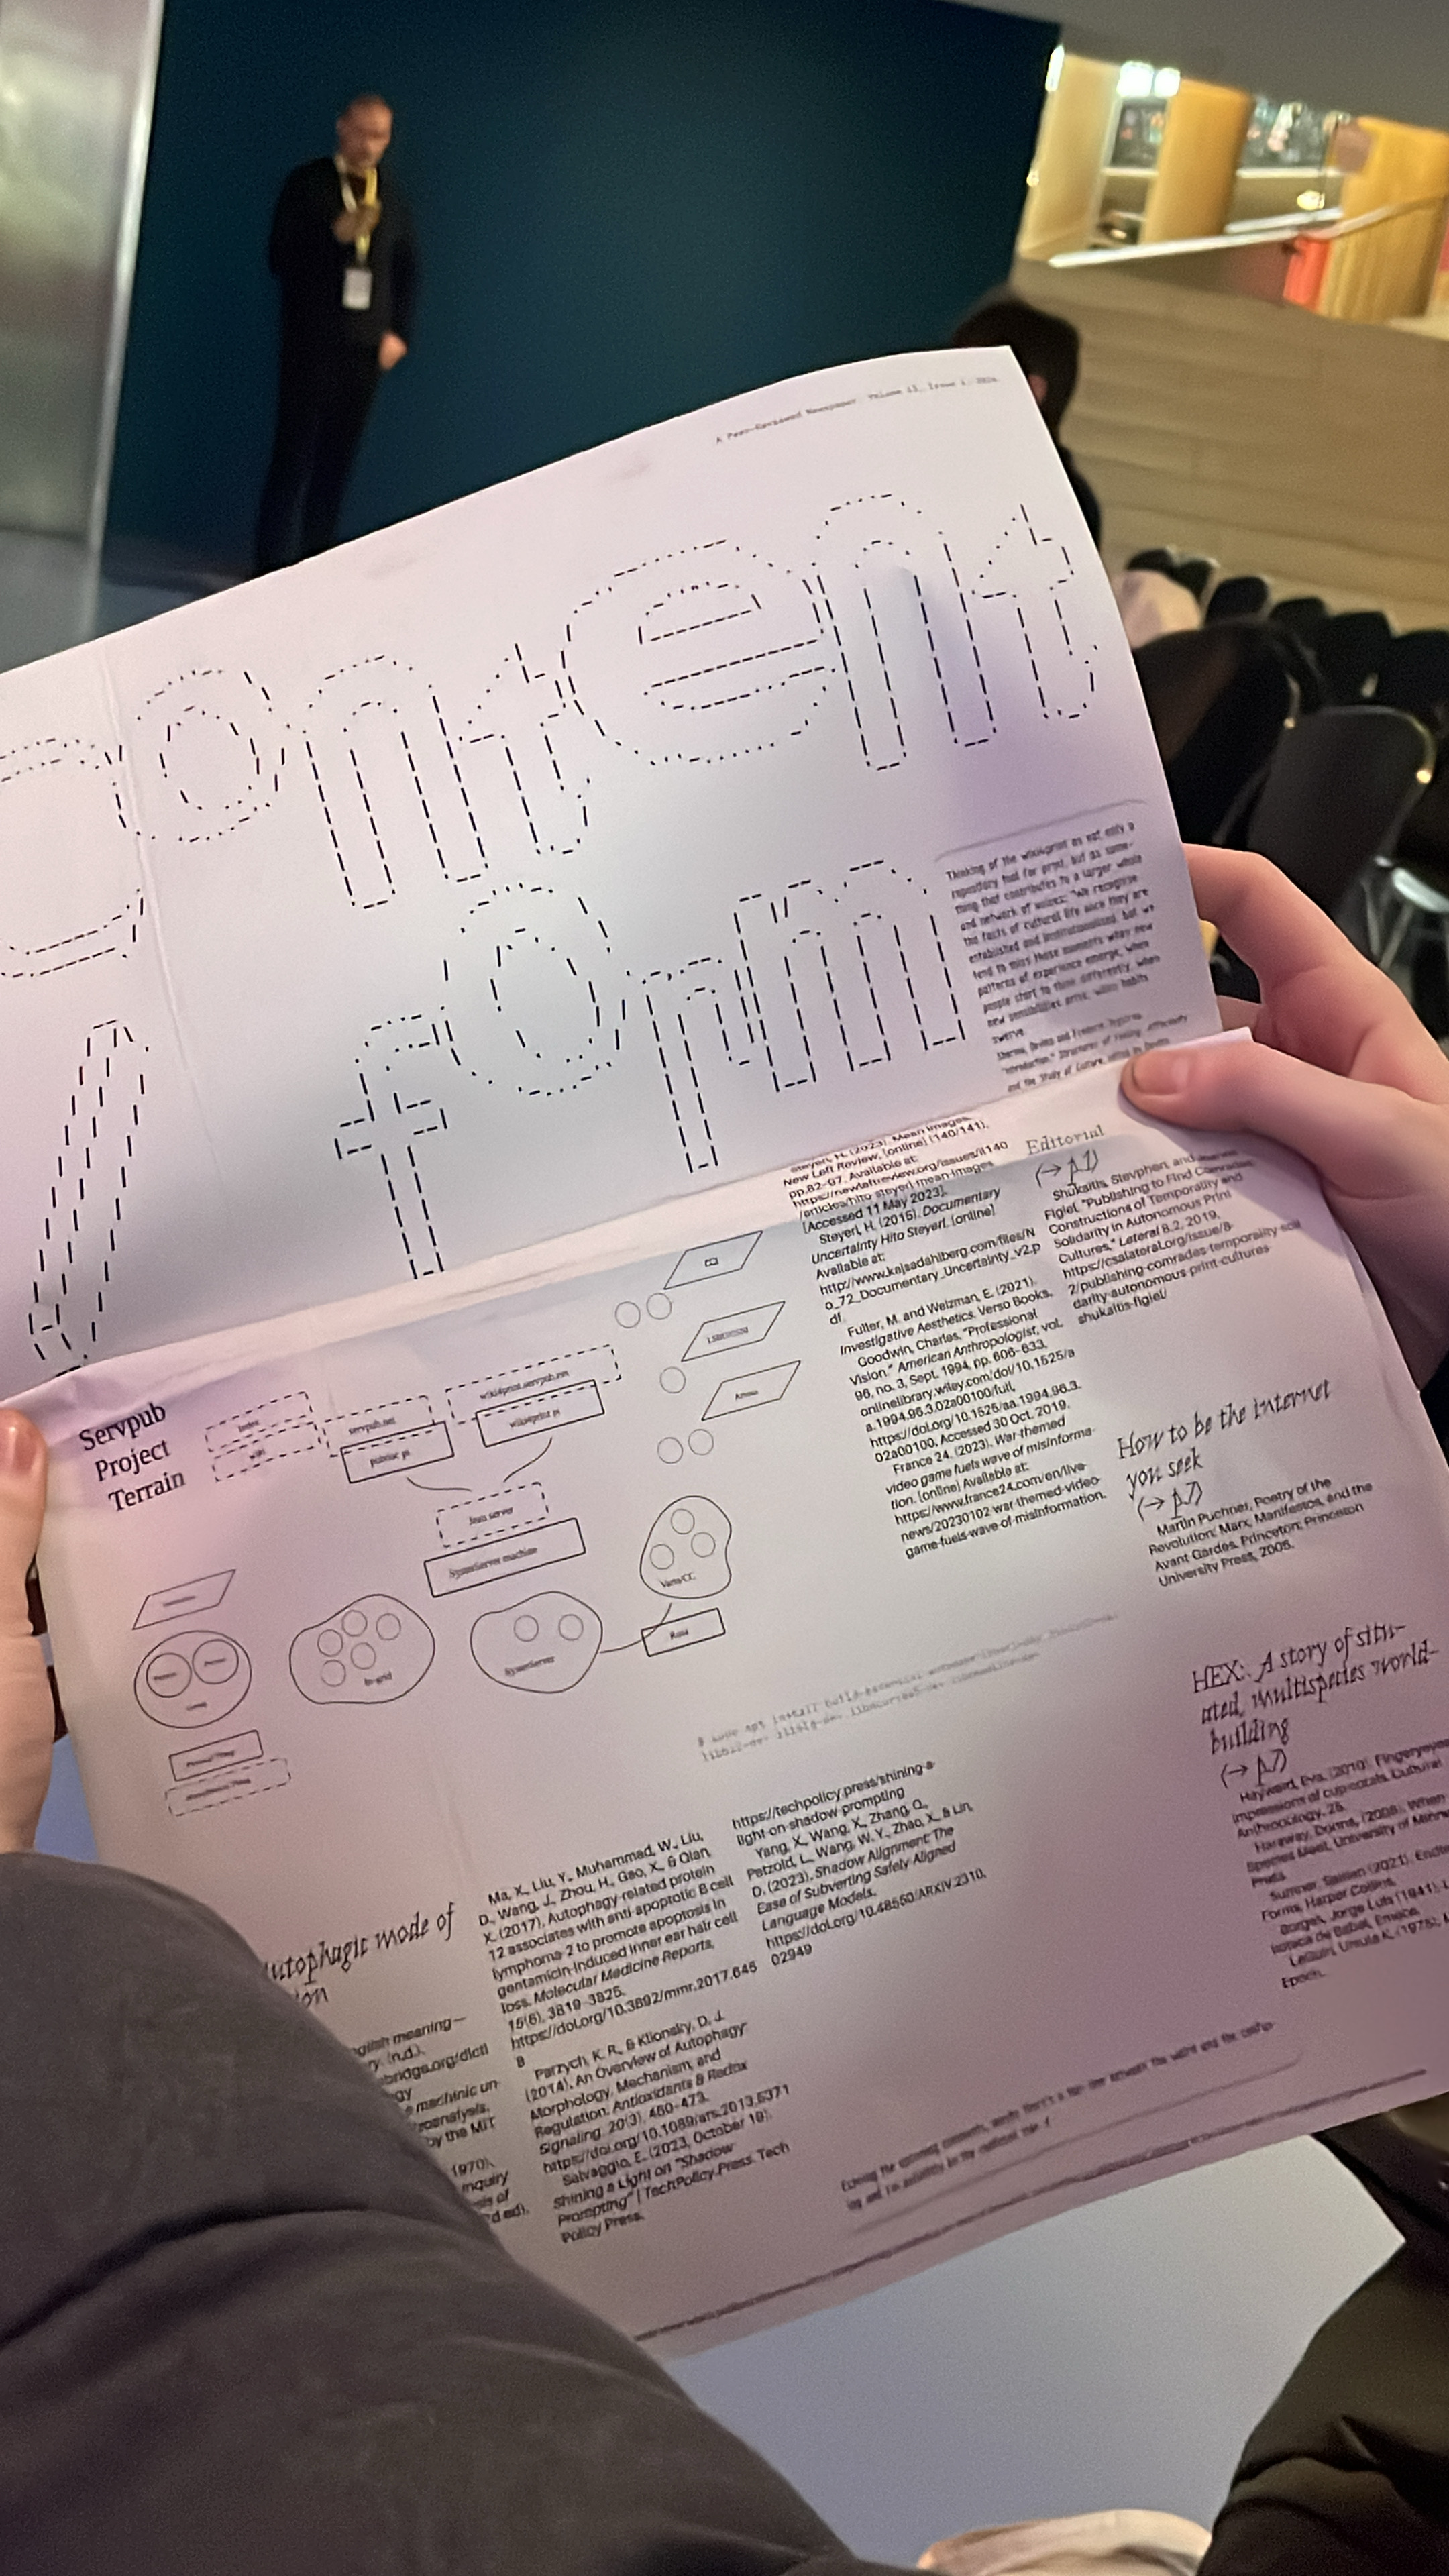 A Peer-Reviewed Newspaper Volume 13, Issue 1, 2024
content
/
form
Thinking of the wiki4print as not only a
repository tool for print, but as some-
thing that contributes to a larger whole
and network of voices: "We recognise
the facts of cultural life once they are
established and institutionalised, but we
tend to miss those moments when new
patterns of experience emerge, when
people start to think differently, when
new sensibilities arise, when habits
swerve.
"Introduction." Structures of Feeling: Affectivity
and the Study of Culture, edited by Devika
Servpub
Project
Terrain
wiki
servpub.net
wiki4print.servpub.net
wiki4print pi
Java server
SystemServer machine
CCI
In-grid
Varia/CC
Rosa
Steyerl, H. (2023). Mean Images.
New Left Review, [online] (140/141),
pp.82–97. Available at:
https://newleftreview.org/issues/ii140
/articles/hito-steyerl-mean-images
[Accessed 11 May 2023].
Steyerl, H. (2015). Documentary
Uncertainty Hito Steyerl. [online]
Available at:
http://www.kajsadahlberg.com/files/N
o_72_Documentary_Uncertainty_v2.p
df
Fuller, M. and Weizman, E. (2021).
Investigative Aesthetics. Verso Books.
Goodwin, Charles. "Professional
Vision." American Anthropologist, vol.
96, no. 3, Sept. 1994, pp. 606–633,
onlinelibrary.wiley.com/doi/10.1525/a
a.1994.96.3.02a00100/full,
https://doi.org/10.1525/aa.1994.96.3.
02a00100. Accessed 30 Oct. 2019.
France 24. (2023). War-themed
video game fuels wave of misinforma-
tion. [online] Available at:
https://www.france24.com/en/live-
news/20230102-war-themed-video-
game-fuels-wave-of-misinformation.
Editorial
(→ p.1)
Shukaitis, Stevphen, and
Figiel. "Publishing to Find Comrades:
Constructions of Temporality and
Solidarity in Autonomous Print
Cultures." Lateral 8.2, 2019.
https://csalateral.org/issue/8-
2/publishing-comrades-temporality-soli
darity-autonomous-print-cultures-
shukaitis-figiel/
How to be the internet
you seek
(→ p.7)
Martin Puchner, Poetry of the
Revolution: Marx, Manifestos, and the
Avant Gardes. Princeton: Princeton
University Press, 2005.
HEX: A story of situ-
ated, multispecies world-
building
(→ p.7)
Hayward, Eva. (2010). Fingeryeyes:
Impressions of cup corals. Cultural
Anthropology, 25.
Haraway, Donna. (2008). When
Species Meet, University of Minne
Press.
Forms, Harper Collins.
Borges, Jorge Luis (1941).
lioteca de Babel, Emece.
LeGuin, Ursula K. (1975).
Epoch.
# sudo apt install build-essential
utophagic mode of
ion
nglish meaning—
ry. (n.d.).
mbridge.org/dicti
gy
machinic un-
by the MIT
1970).
nquiry
sis of
d ed).
Ma, X., Liu, Y., Muhammad, W., Liu,
D., Wang, J., Zhou, H., Gao, X., & Qian,
X. (2017). Autophagy-related protein
12 associates with anti-apoptotic B cell
lymphoma-2 to promote apoptosis in
gentamicin-induced inner ear hair cell
loss. Molecular Medicine Reports,
15(6), 3819–3825.
https://doi.org/10.3892/mmr.2017.645
8
Parzych, K. R., & Klionsky, D. J.
(2014). An Overview of Autophagy:
Morphology, Mechanism, and
Regulation. Antioxidants & Redox
Signaling, 20(3), 460–473.
https://doi.org/10.1089/ars.2013.5371
Salvaggio, E. (2023, October 19).
Shining a Light on "Shadow
Prompting" | TechPolicy.Press. Tech
Policy Press.
https://techpolicy.press/shining-a-
light-on-shadow-prompting
Yang, X., Wang, X., Zhang, Q.,
Petzold, L., Wang, W. Y., Zhao, X., & Lin,
D. (2023). Shadow Alignment: The
Ease of Subverting Safely Aligned
Language Models.
https://doi.org/10.48550/ARXIV.2310.
02949